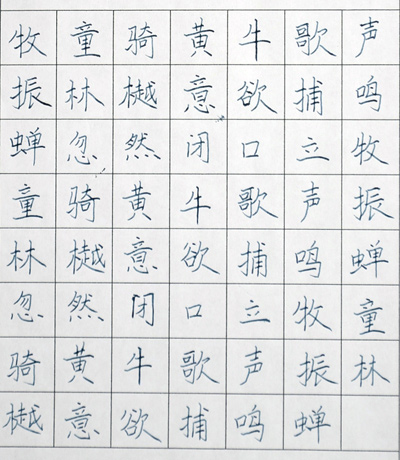 牧童骑黄牛歌声
振林樾意欲捕鸣
蝉忽然闭口立牧
童骑黄牛歌声振
林樾意欲捕鸣蝉
忽然闭口立牧童
骑黄牛歌声振林
樾意欲捕鸣蝉